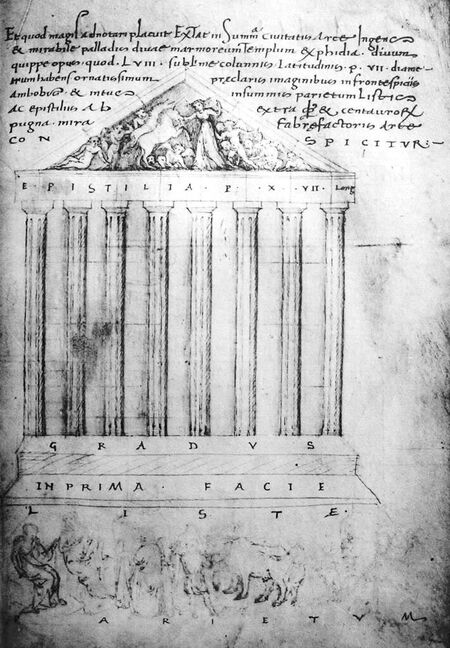 Et quod magis adnotari placuit Extat in Summa Civitatis Arce Ingens
& mirabile palladis divae marmoreum Templum ex phidia. divum
quippe opus. quod. LVIII. sublime columnis Latitudinis. p. VII. diame-
trum habens ornatissimum preclaris imaginibus in frontespiciis
ambobus & intus in summis parietum Listis
ac epistiliis Ab extra & centaurorum
pugna. mira fabrefactoriis Arte
CON SPICITUR:-
EPISTILIA. P. X. VII. Long
GRADVS
IN PRIMA FACIE
LISTE.
ARIETVM